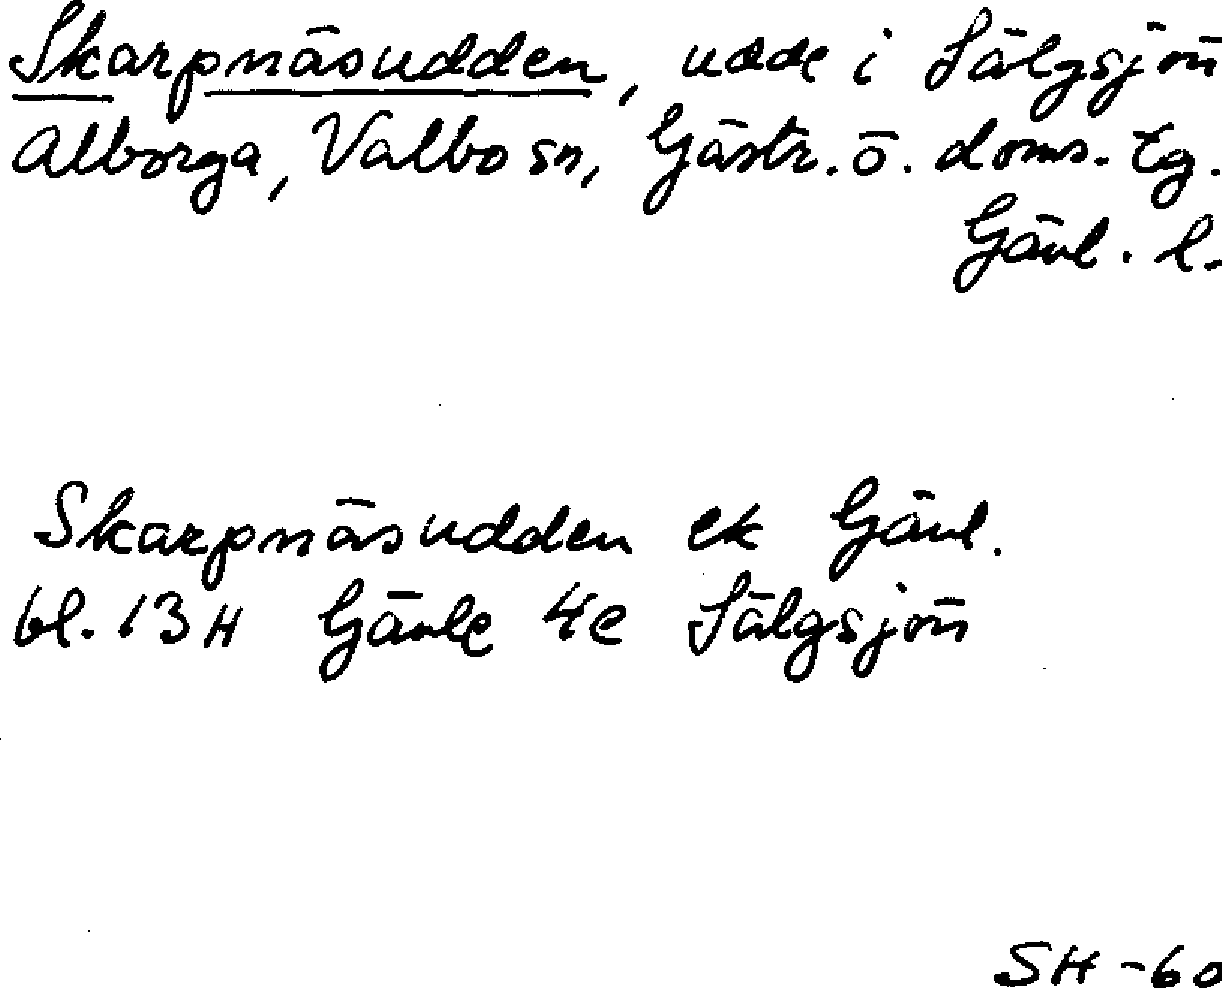 Skarpnäsudden, udde i Sälgsjön
Alborga, Valbo sn, Gästr. ö. doms. tg.
Gävl. l.
Skarpnäsudden ek Gävl.
bl. 13H Gävle 4e Sälgsjön
SH -60